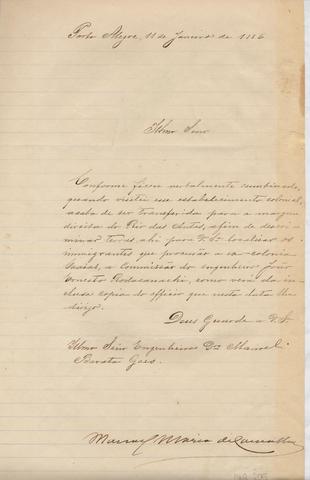 Porto Alegre, 11 de Janeiro de 1886
Illmo Senr
Conforme ficou verbalmente combinado,
quando visitei esse estabelecimento colonial,
acaba de ser transferida para a margem
direita do Rio das Antas, afim de discri-
minar terras, ahi para V. Sª localisar os
immigrantes que procurão a ex-colonia
Caxias, a Commissão do engenheiro
Ernesto Rodocanachi, como verá da in-
clusa copia do officio que nesta data lhe
dirijo.
Deus Guarde a V. Sª
Illmo Senr Engenheiro Dor Manoel
Barata Goes
Manoel Maria de Carvalho